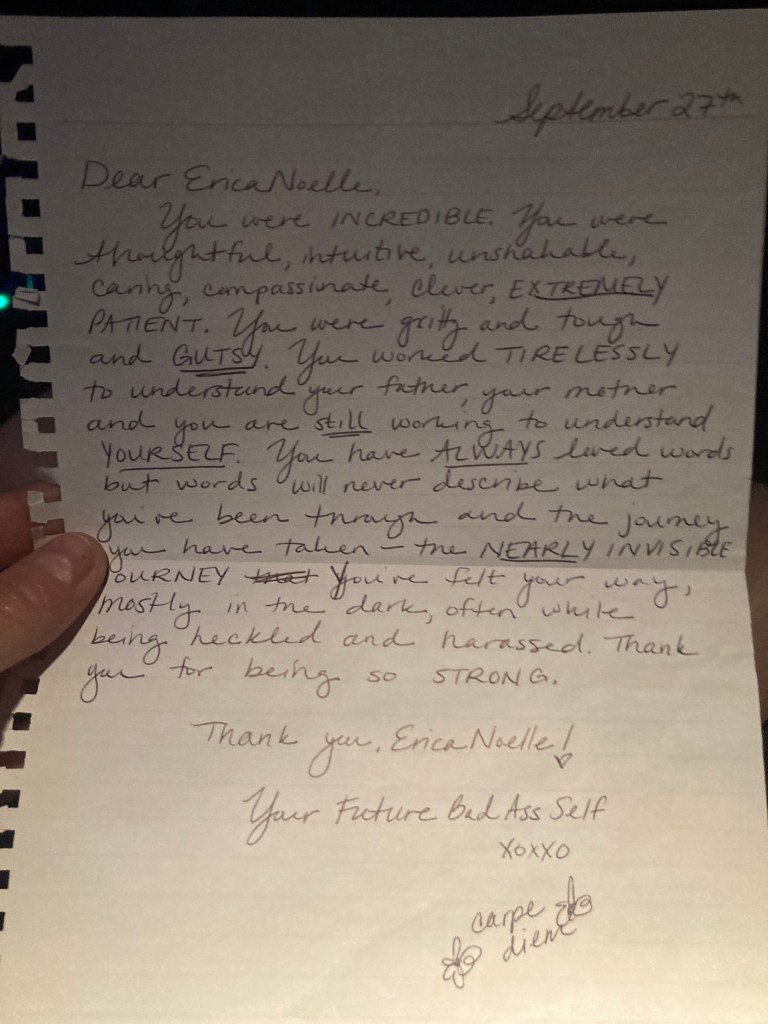 September 27th
Dear Erica Noelle,
You were INCREDIBLE. You were
thoughtful, intuitive, unshakable,
caring, compassinate, clever, EXTREMELY
PATIENT. You were gritty and tough
and GUTSY. You worked TIRELESSLY
to understand your father, your mother
and you are still working to understand
YOURSELF. You have ALWAYS loved words
but words will never describe what
you've been through and the journey
you have taken – the NEARLY INVISIBLE
JOURNEY You've felt your way,
mostly in the dark, often while
being heckled and harassed. Thank
you for being so STRONG.
Thank you, Erica Noelle!
Your Future Bad Ass Self
xoxxo
carpe
diem